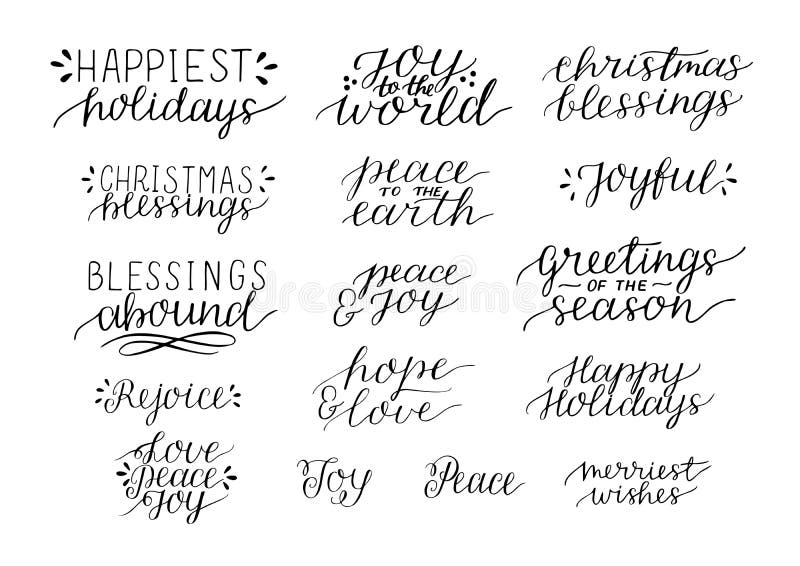 HAPPIEST
holidays
Joy
to the
world
christmas
blessings
CHRISTMAS
blessings
peace
TO THE
earth
Joyful
BLESSINGS
abound
peace
& Joy
Greetings
OF THE
season
Rejoice
hope
& love
Happy
Holidays
Love
Peace
Joy
Joy
Peace
merriest
wishes
dreamstime